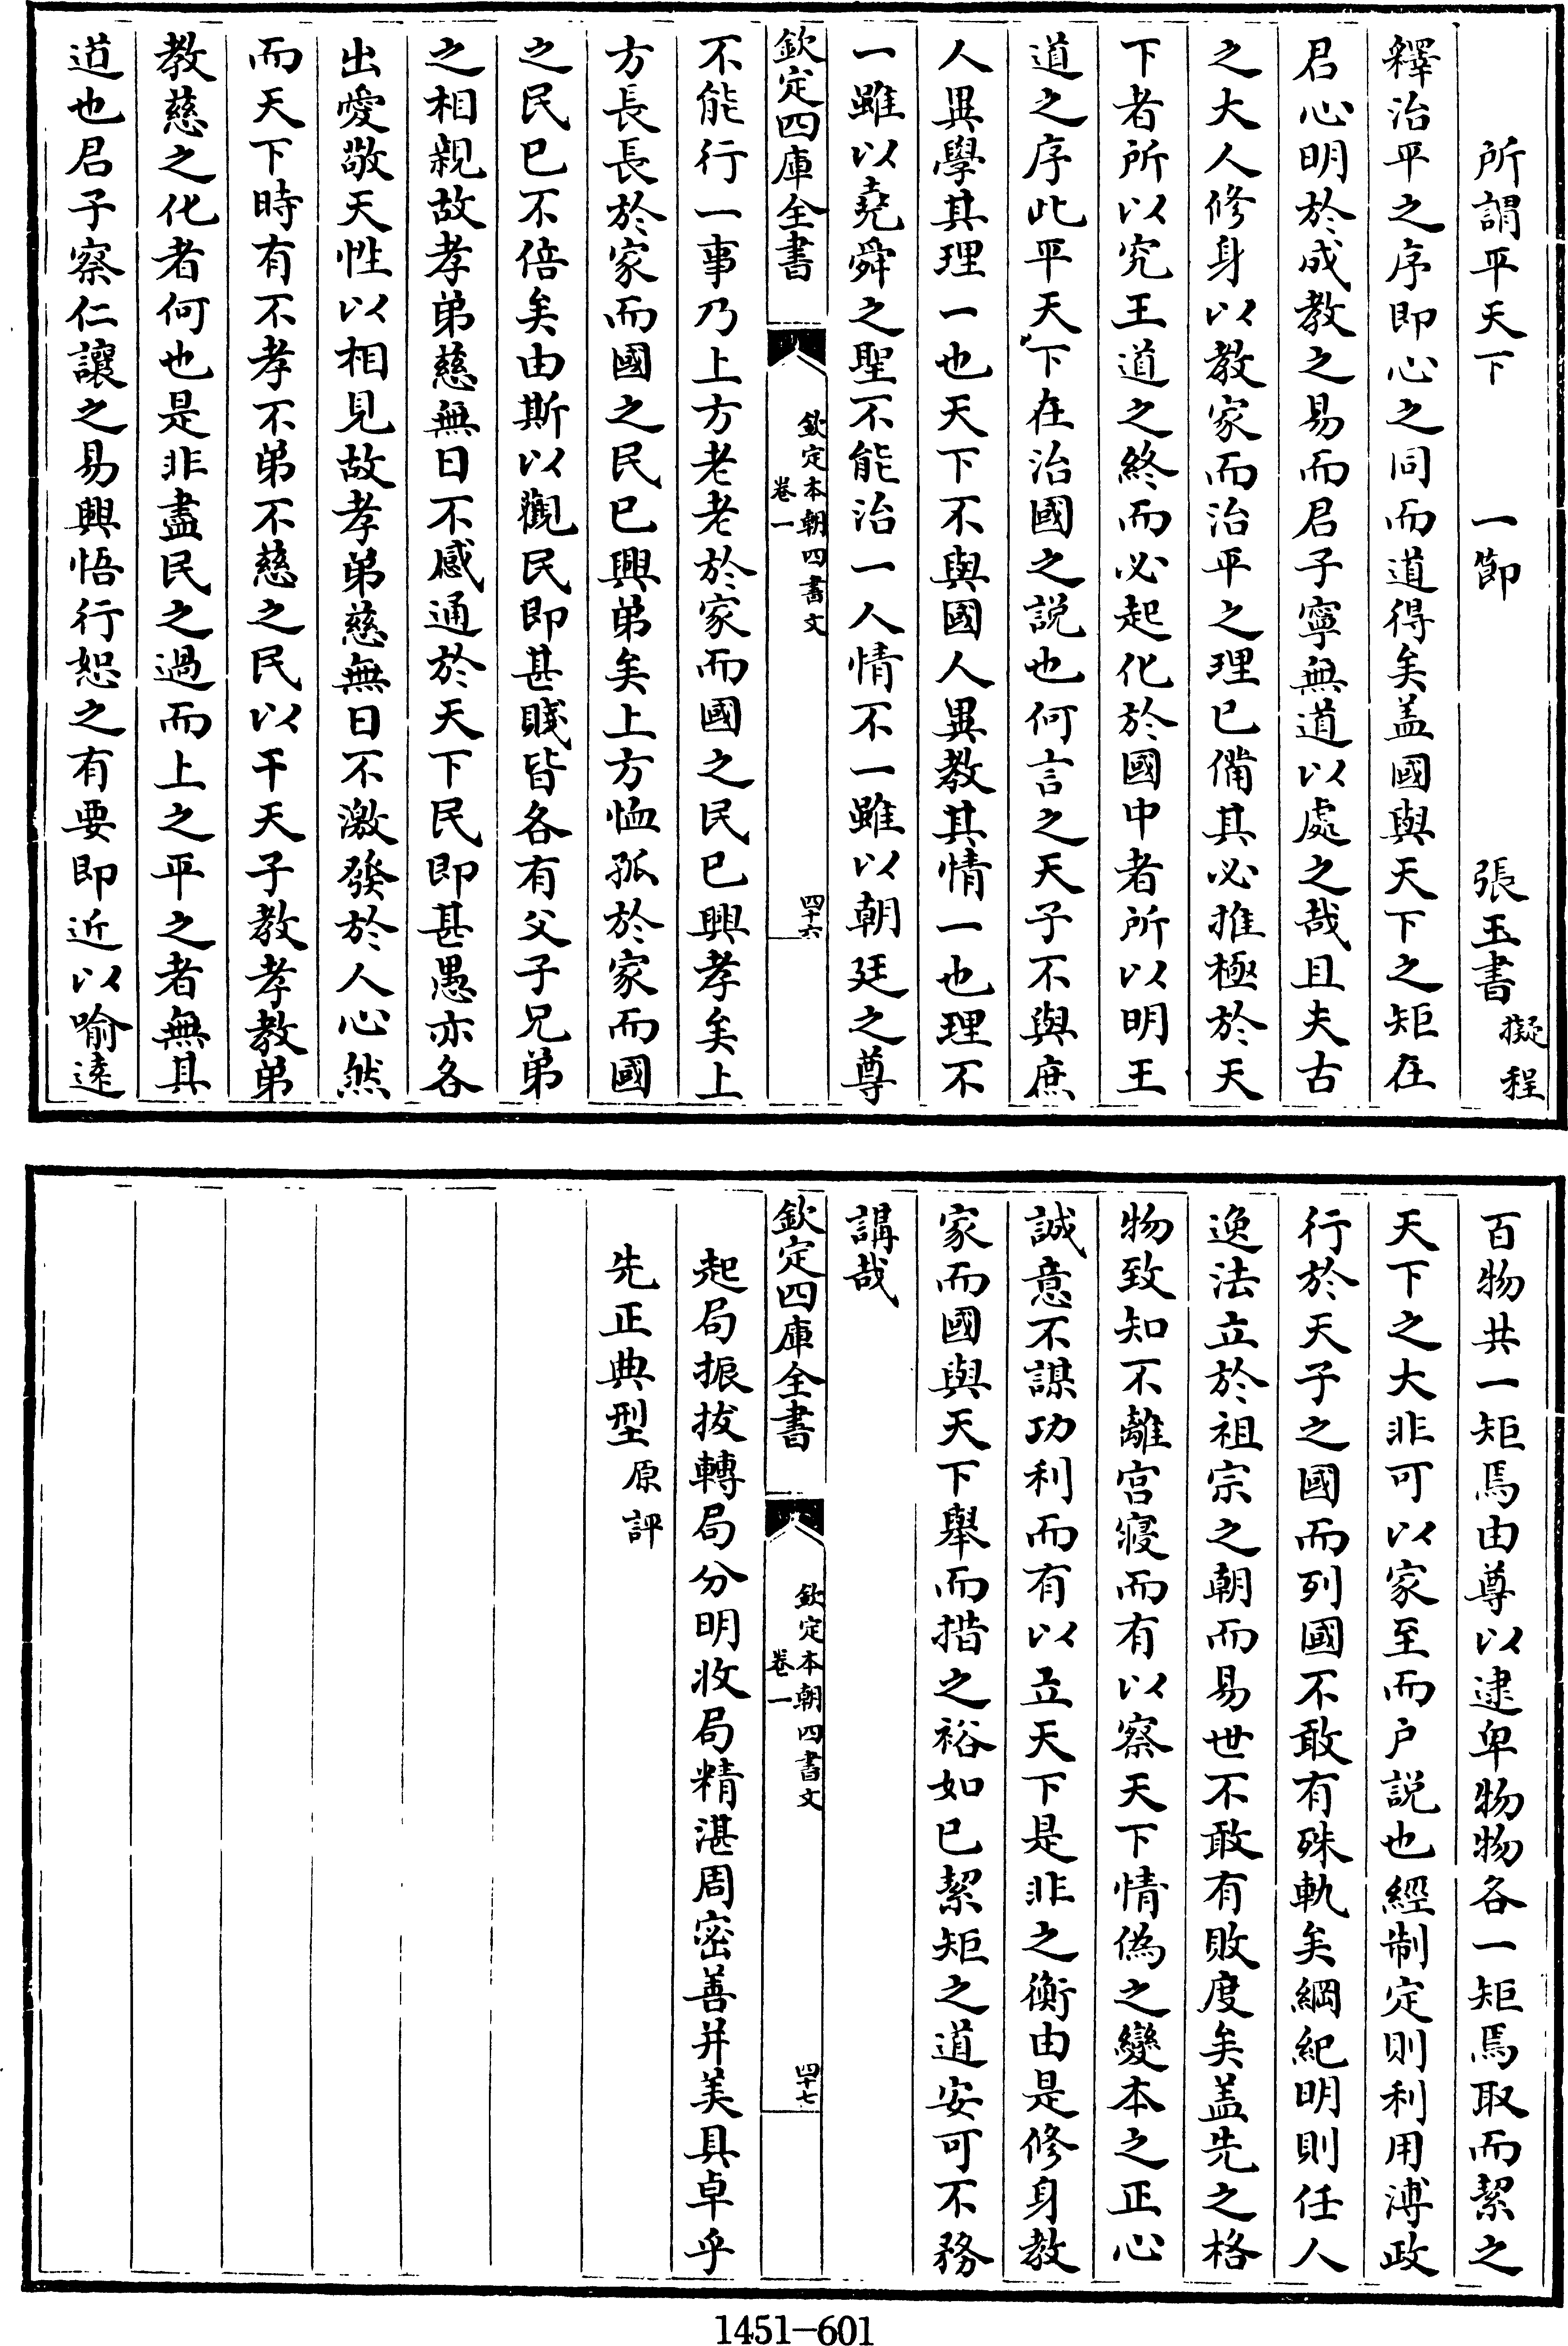 所謂平天下　一節　張玉書擬程
釋治平之序即心之同而道得矣盖國與天下之矩在
君心明於成教之易而君子寧無道以處之哉且夫古
之大人修身以教家而治平之理已備其必推極於天
下者所以究王道之終而必起化於國中者所以明王
道之序此平天下在治國之説也何言之天子不與庶
人異學其理一也天下不與國人異教其情一也理不
一雖以堯舜之聖不能治一人情不一雖以朝廷之尊
欽定四庫全書　欽定本朝四書文卷一　四十六
不能行一事乃上方老老於家而國之民已興孝矣上
方長長於家而國之民已興弟矣上方恤孤於家而國
之民已不倍矣由斯以觀民即甚賤皆各有父子兄弟
之相親故孝弟慈無日不感通於天下民即甚愚亦各
出愛敬天性以相見故孝弟慈無日不激發於人心然
而天下時有不孝不弟不慈之民以干天子教孝教弟
教慈之化者何也是非盡民之過而上之平之者無具
道也君子察仁讓之易興悟行恕之有要即近以喻遠
百物共一矩焉由尊以逮卑物物各一矩焉取而絜之
天下之大非可以家至而户説也經制定則利用溥政
行於天子之國而列國不敢有殊軌矣綱紀明則任人
逸法立於祖宗之朝而易世不敢有敗度矣盖先之格
物致知不離宫寢而有以察天下情偽之變本之正心
誠意不謀功利而有以立天下是非之衡由是修身教
家而國與天下舉而措之裕如已絜矩之道安可不務
講哉
欽定四庫全書　欽定本朝四書文卷一　四十七
起局振拔轉局分明收局精湛周密善并美具卓乎
先正典型原評
1451-601